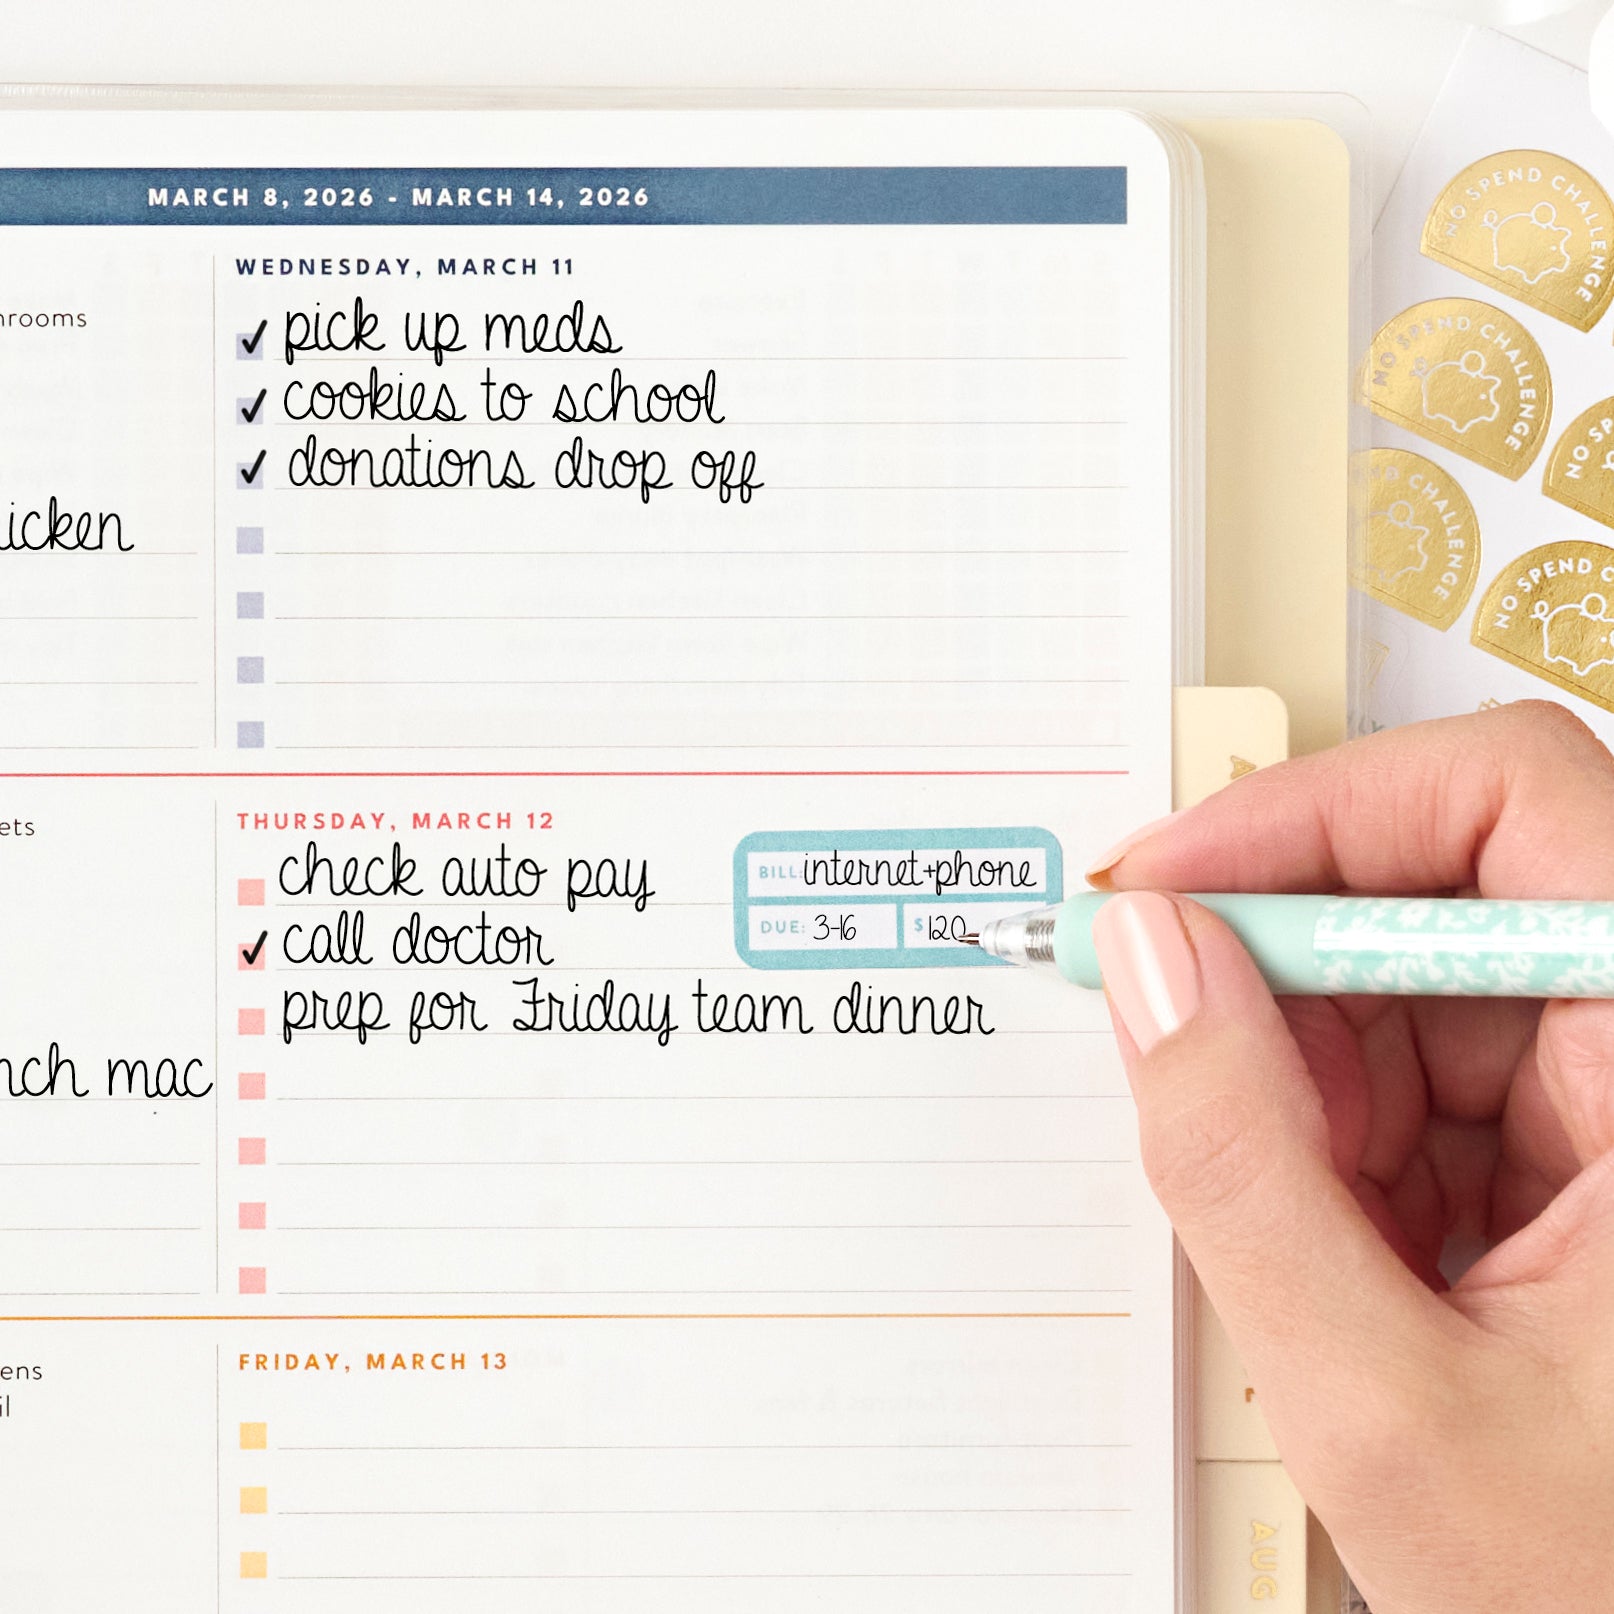 MARCH 8, 2026 - MARCH 14, 2026
WEDNESDAY, MARCH 11
hrooms
pick up meds
cookies to school
donations drop off
icken
THURSDAY, MARCH 12
ets
check auto pay
BILL: internet+phone
call doctor
DUE: 3-16
$120
prep for Friday team dinner
nch mac
FRIDAY, MARCH 13
ens
il
AUG
NO SPEND CHALLENGE
NO SPEND CHALLENGE
NO SP
ND CHALLENGE
NO SPEND C